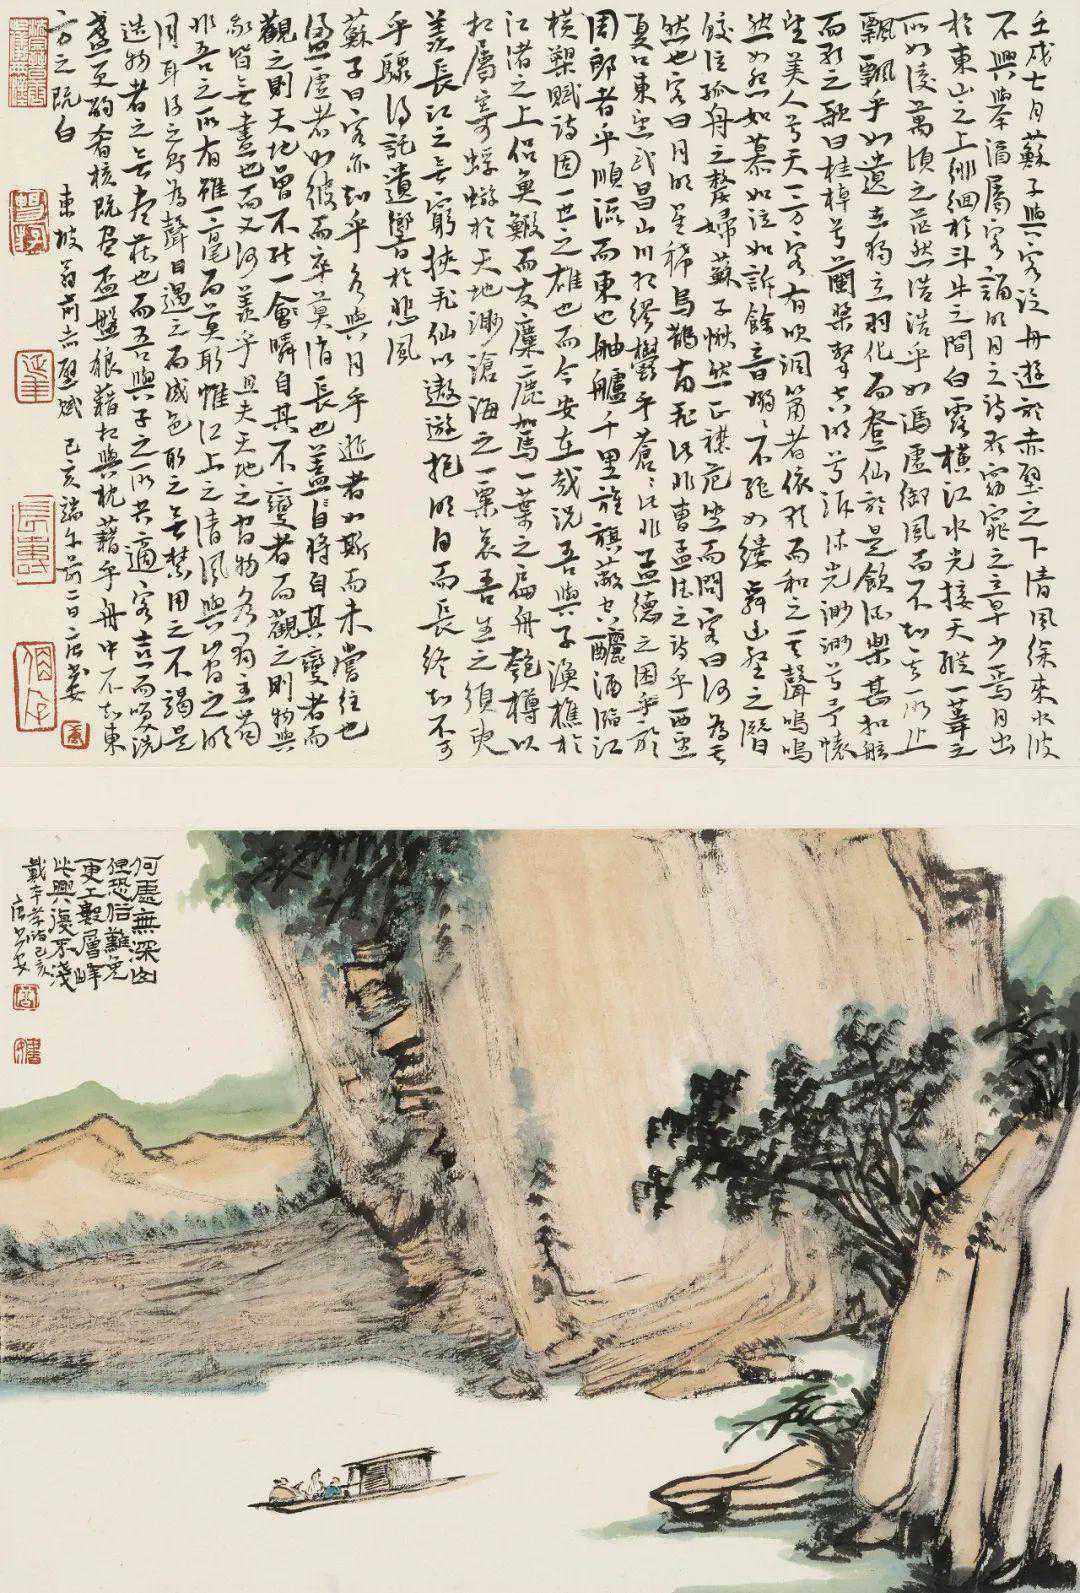 壬戌七月蘇子與客泛舟遊於赤壁之下清風徐來水波
不興舉酒屬客誦明月之詩歌窈窕之章少焉月出
於東山之上徘徊於斗牛之間白露橫江水光接天縱一葦之
所如凌萬頃之茫然浩浩乎如馮虛御風而不知其所止
飄飄乎如遺世獨立羽化而登仙於是飲酒樂甚扣舷
而歌之歌曰桂棹兮蘭槳擊空明兮泝流光渺渺兮予懷
望美人兮天一方客有吹洞簫者依歌而和之其聲嗚嗚
然如怨如慕如泣如訴餘音嫋嫋不絕如縷舞幽壑之潛
蛟泣孤舟之嫠婦蘇子愀然正襟危坐而問客曰何為其
然也客曰月明星稀烏鵲南飛此非曹孟德之詩乎西望
夏口東望武昌山川相繆鬱乎蒼蒼此非孟德之困乎於
周郎者乎順流而東也舳艫千里旌旗蔽空釃酒臨江
橫槊賦詩固一世之雄也而今安在哉況吾與子漁樵於
江渚之上侶魚鰕而友麋鹿駕一葉之扁舟匏樽以
相屬寄蜉蝣於天地渺滄海之一粟哀吾生之須臾
羨長江之無窮挾飛仙以遨遊抱明月而長終知不可
乎驟得託遺響於悲風
蘇子曰客亦知乎水與月乎逝者如斯而未嘗往也
盈虛者如彼而卒莫消長也蓋自將自其變者而
觀之則天地曾不能一瞬自其不變者而觀之則物與
我皆無盡也而又何羨乎且夫天地之間物各有主苟
非吾之所有雖一毫而莫取惟江上之清風與山間之明
月耳得之而為聲目遇之而成色取之無禁用之不竭是
造物者之無盡藏也而吾與子之所共適客喜而笑洗
盞更酌肴核既盡杯盤狼藉相與枕藉乎舟中不知東
方之既白 東坡翁前赤壁賦 己亥端午前二日唐書安
何處無深山
但恐俗難免
更上數層峰
此興復不淺
戴本孝詩己亥
唐書安